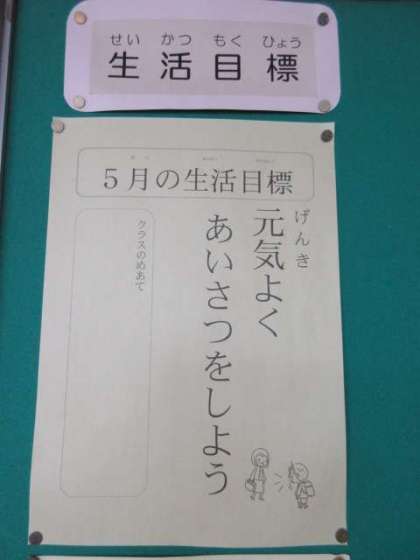 せい かつ もく ひょう
生活目標
5月の生活目標
げんき
元気よく
あいさつをしよう
クラスのめあて